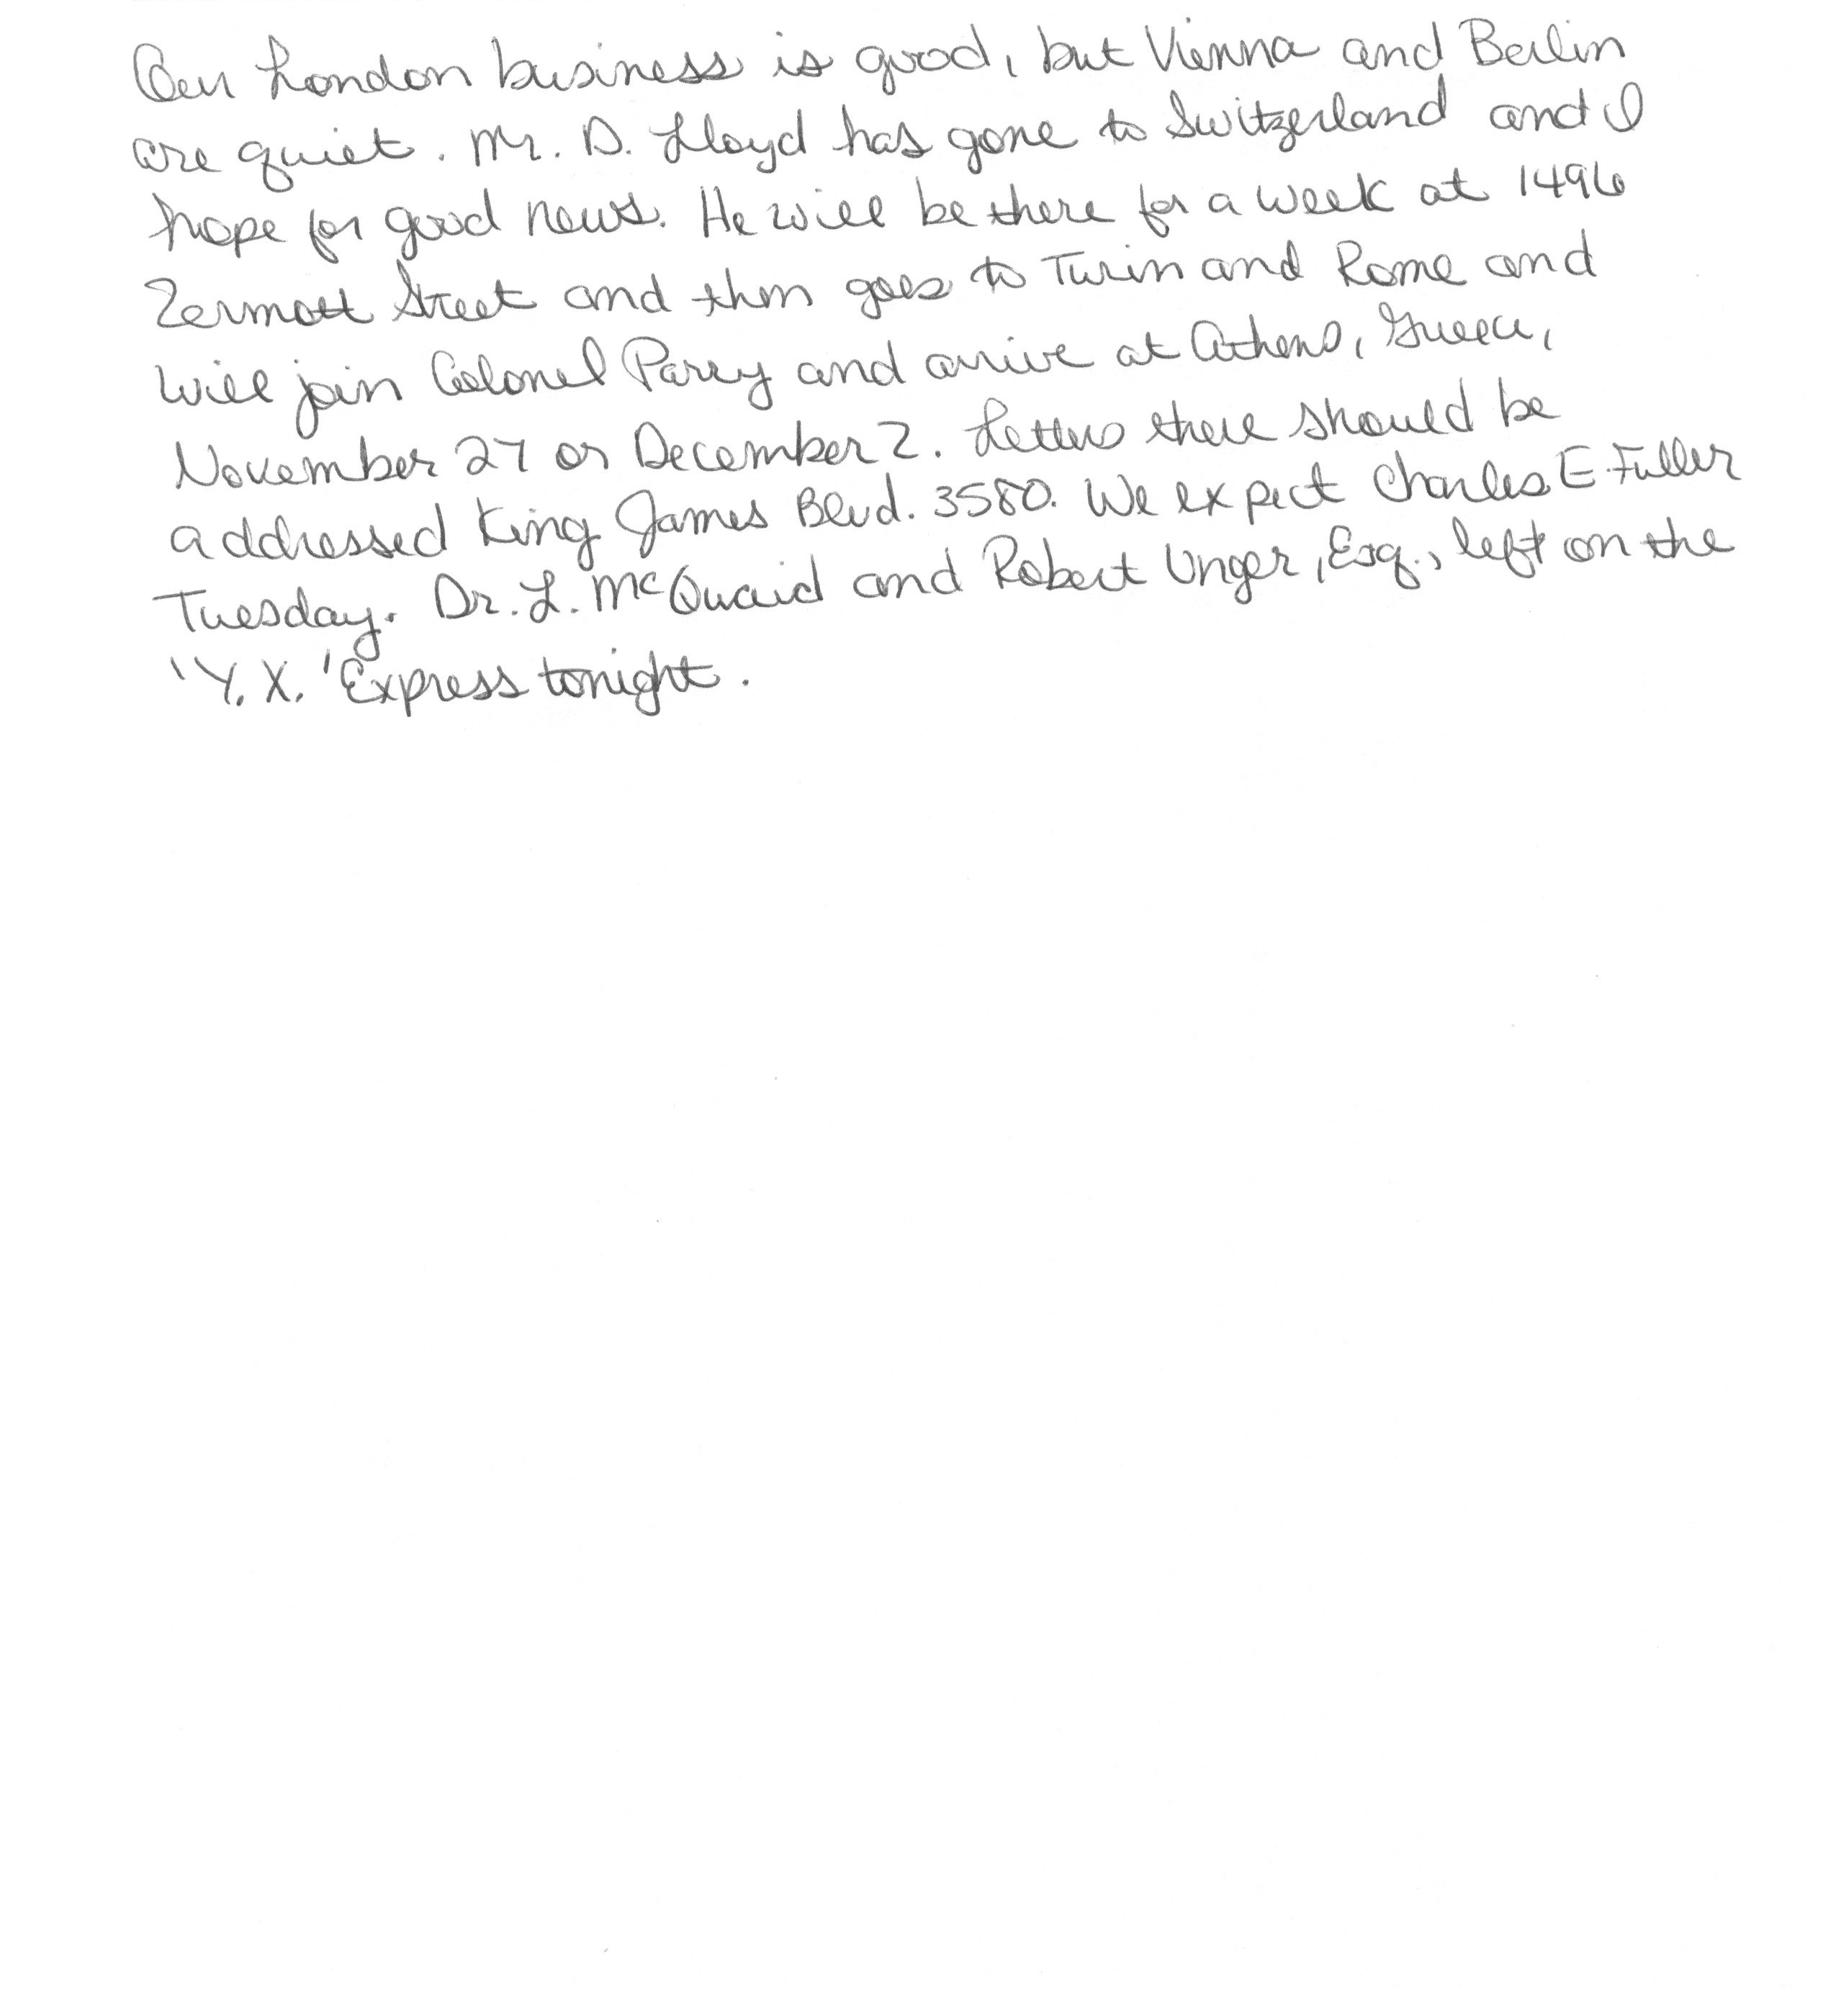 Our London business is good, but Vienna and Berlin
are quiet. Mr. D. Lloyd has gone to Switzerland and I
hope for good news. He will be there for a week at 1496
Zermott Street and then goes to Turin and Rome and
will join Colonel Parry and arrive at Athens, Greece,
November 27 or December 2. Letters there should be
addressed King James Blvd. 3580. We expect Charles E. Fuller
Tuesday. Dr. L. McQuaid and Robert Unger, Esq., left on the
'Y. X.' Express tonight.